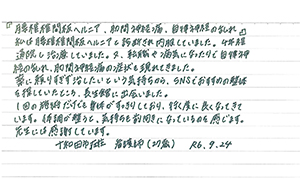 『腰椎椎間板ヘルニア、肋間神経痛、自律神経の乱れ』
私は腰椎椎間板ヘルニアと診断され内服していました。4年程
通院し治療していました。又、転職や病気になったりと自律神
経の乱れ、肋間神経痛の症状も現れてきました。
薬に頼りすぎず治したいという気持ちから、SNSでおすすめの整体
を探していたところ、長生館に出会いました。
1回の施術だけでも身体がすっきりしており、徐々に良くなってきて
います。体調が整うと、気持ちも前向きになっているのを感じます。
先生には感謝しています。
十和田市在住 看護師 R6.9.24